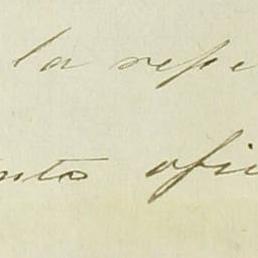 la repe
nto ofi